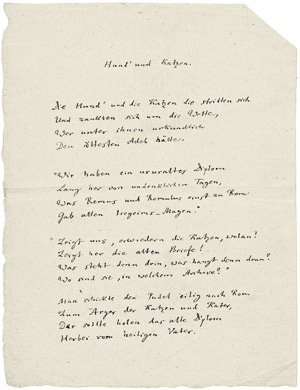 Hund' und Katzen.
Die Hund' und die Katzen die stritten sich
Und zankten sich um die Wette,
Wer unter ihnen urkundlich
Den ältesten Adel hätte.
"Wir haben ein uruealtes Diplom
Lang her von undenklichen Tagen,
Was Remus und Romulus einst zu Rom
Gab allen
"Zeigt uns, erwiedern die Katzen, wolan!
Zeigt her die alten Briefe!
Was steht denn drin, was hangt denn dran?
Wo sind sie, in welchem Archive?"
Man schickte den Pudel eilig nach Rom
Zum Ärger der Katzen und Kater,
Der sollte holen das alte Diplom
Herbei vom heiligen Vater.